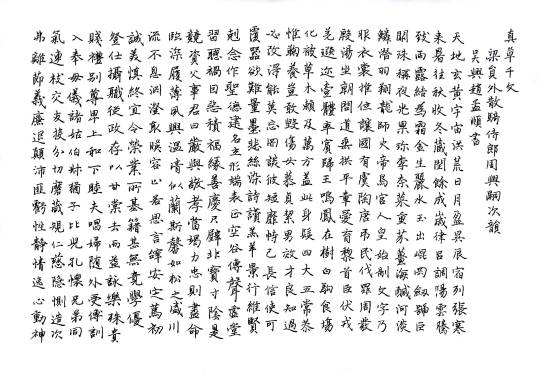 真草千文
梁員外散騎侍郎周興嗣次韻
吳興趙孟頫書
天地玄黃宇宙洪荒日月盈昃辰宿列張寒
來暑往秋收冬藏閏餘成歲律呂調陽雲騰
致雨露結為霜金生麗水玉出崐岡劍號巨
闕珠稱夜光果珍李柰菜重芥薑海鹹河淡
鱗潛羽翔龍師火帝鳥官人皇始制文字乃
服衣裳推位讓國有虞陶唐弔民伐罪周發
殷湯坐朝問道垂拱平章愛育黎首臣伏戎
羌遐邇壹體率賓歸王鳴鳳在樹白駒食場
化被草木賴及萬方蓋此身髮四大五常恭
惟鞠養豈敢毀傷女慕貞絜男效才良知過
必改得能莫忘罔談彼短靡恃己長信使可
覆器欲難量墨悲絲染詩讚羔羊景行維賢
剋念作聖德建名立形端表正空谷傳聲虛堂
習聽禍因惡積福緣善慶尺璧非寶寸陰是
競資父事君曰嚴與敬孝當竭力忠則盡命
臨深履薄夙興溫凊似蘭斯馨如松之盛川
流不息淵澄取暎容止若思言辭安定篤初
誠美慎終宜令榮業所基籍甚無竟學優
登仕攝職從政存以甘棠去而益詠樂殊貴
賤禮別尊卑上和下睦夫唱婦隨外受傅訓
入奉母儀諸姑伯叔猶子比兒孔懷兄弟同
氣連枝交友投分切磨箴規仁慈隱惻造次
弗離節義廉退顛沛匪虧性靜情逸心動神